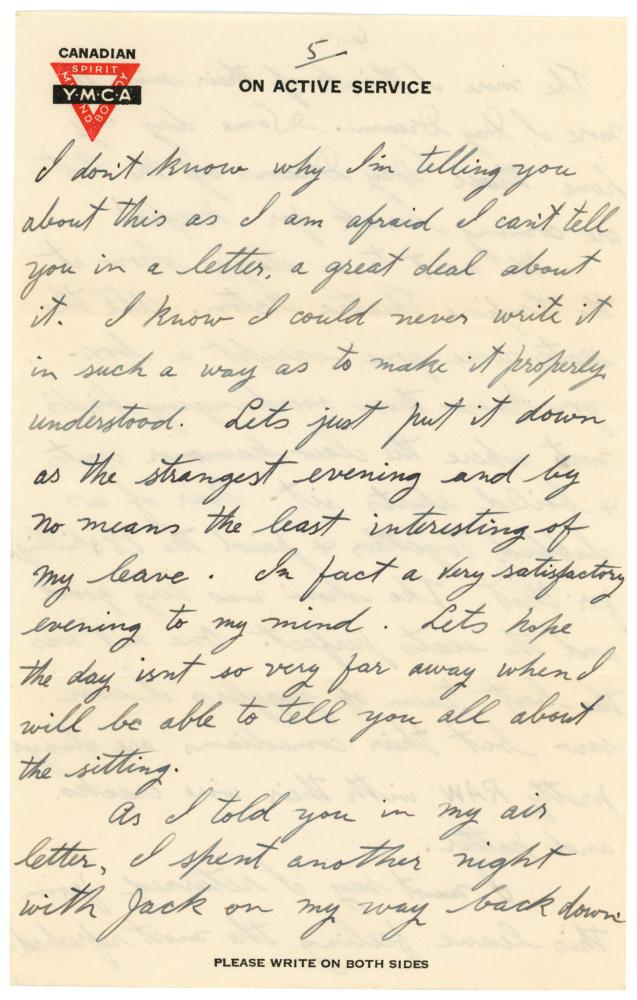 5
CANADIAN
SPIRIT
MIND
BODY
Y·M·C·A
ON ACTIVE SERVICE
I don't know why I'm telling you
about this as I am afraid I can't tell
you in a letter, a great deal about
it. I know I could never write it
in such a way as to make it properly
understood. Lets just put it down
as the strangest evening and by
no means the least interesting of
my leave. In fact a very satisfactory
evening to my mind. Lets hope
the day isnt so very far away when I
will be able to tell you all about
the sitting.
As I told you in my air
letter, I spent another night
with Jack on my way back down
PLEASE WRITE ON BOTH SIDES